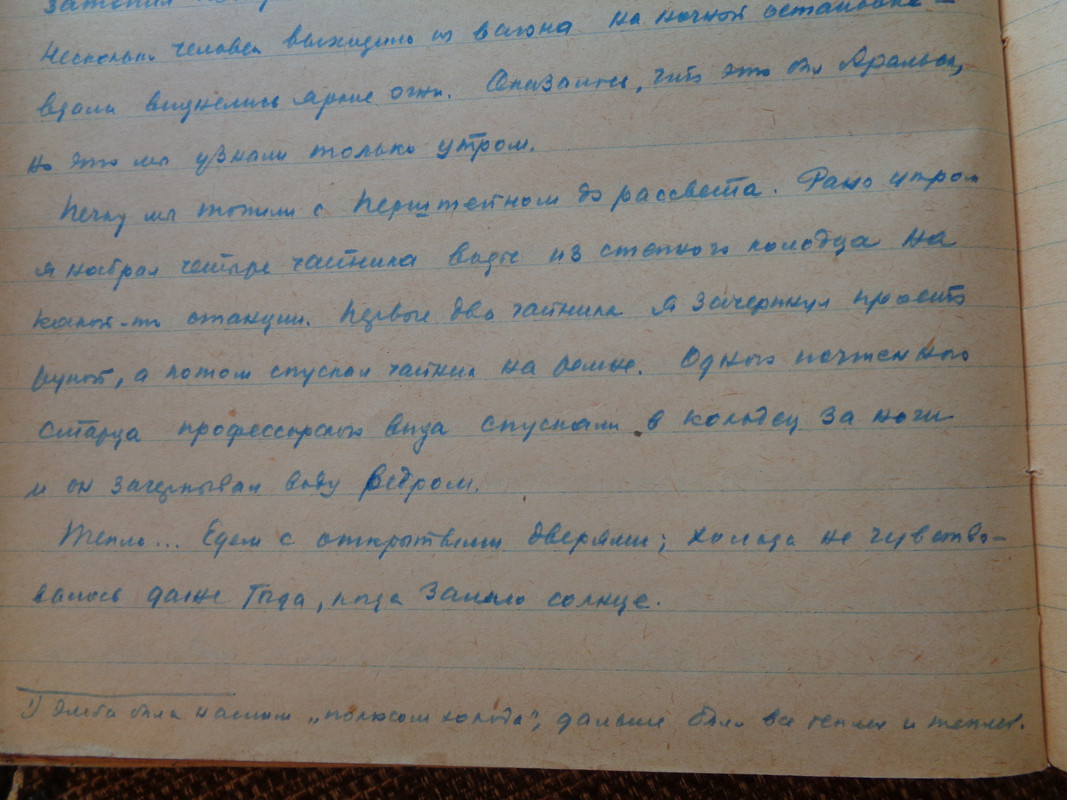 Несколько человек выходило из вагона на ночной остановке –
вдали виднелись яркие огни. Оказалось, что это был Аральск,
но это мы узнали только утром.
Печку мы топили с Перштейном до рассвета. Рано утром
я набрал четыре чайника воды из степного колодца на
какой-то станции. Первые два чайника я зачерпнул просто
рукой, а потом спускал чайник на ремне. Одного почтенного
старца профессорского вида спускали в колодец за ноги
и он зачерпывал воду ведром.
Тепло... Едем с открытыми дверями; холода не чувство-
валось даже тогда, когда зашло солнце.
1) Эмба была нашим „полюсом холода", дальше было все теплее и теплее.